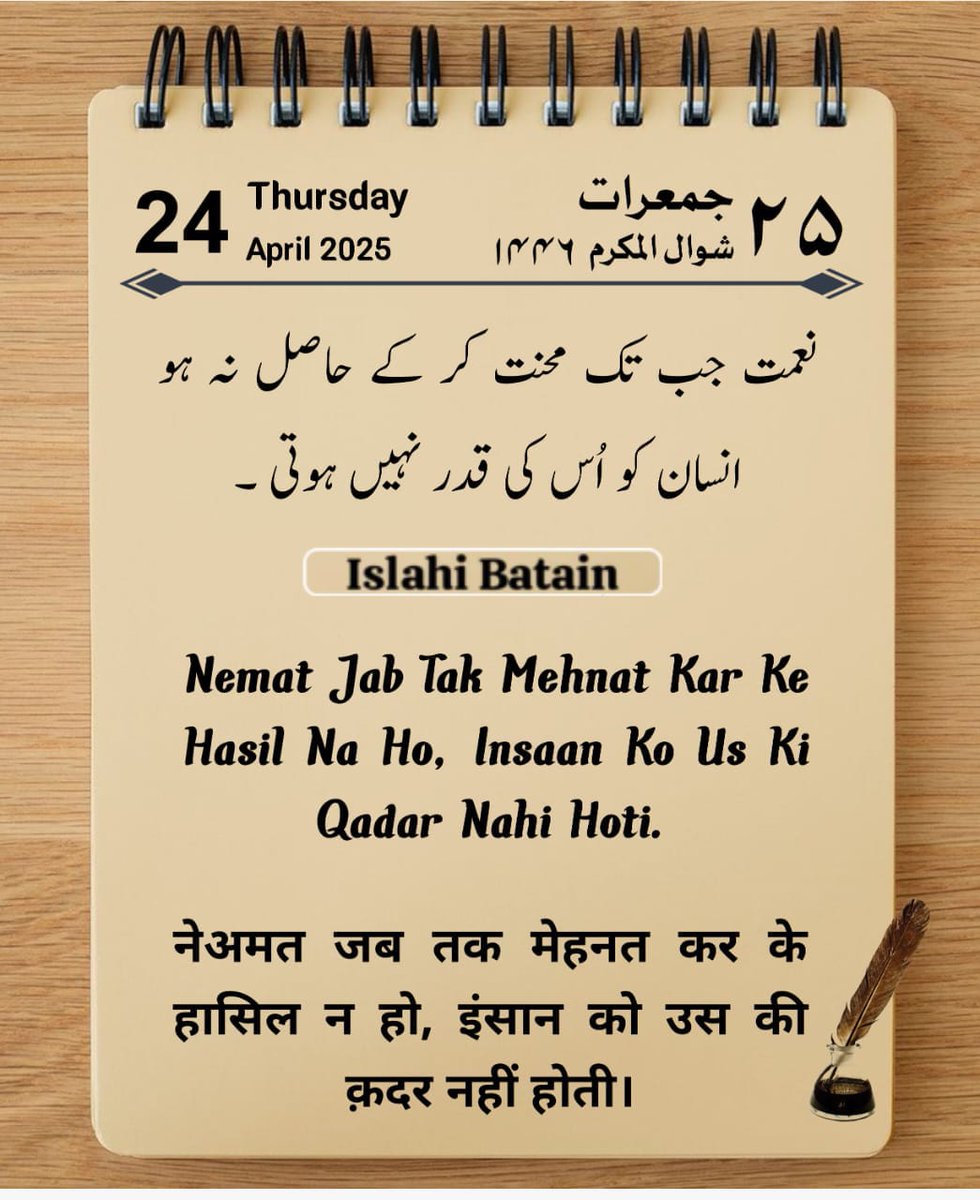 24 Thursday
April 2025
۲۵ جمعرات
شوال المکرم ۱۴۴۶
نعمت جب تک محنت کر کے حاصل نہ ہو
انسان کو اُس کی قدر نہیں ہوتی ۔
Islahi Batain
Nemat Jab Tak Mehnat Kar Ke
Hasil Na Ho, Insaan Ko Us Ki
Qadar Nahi Hoti.
नेअमत जब तक मेहनत कर के
हासिल न हो, इंसान को उस की
क़दर नहीं होती।